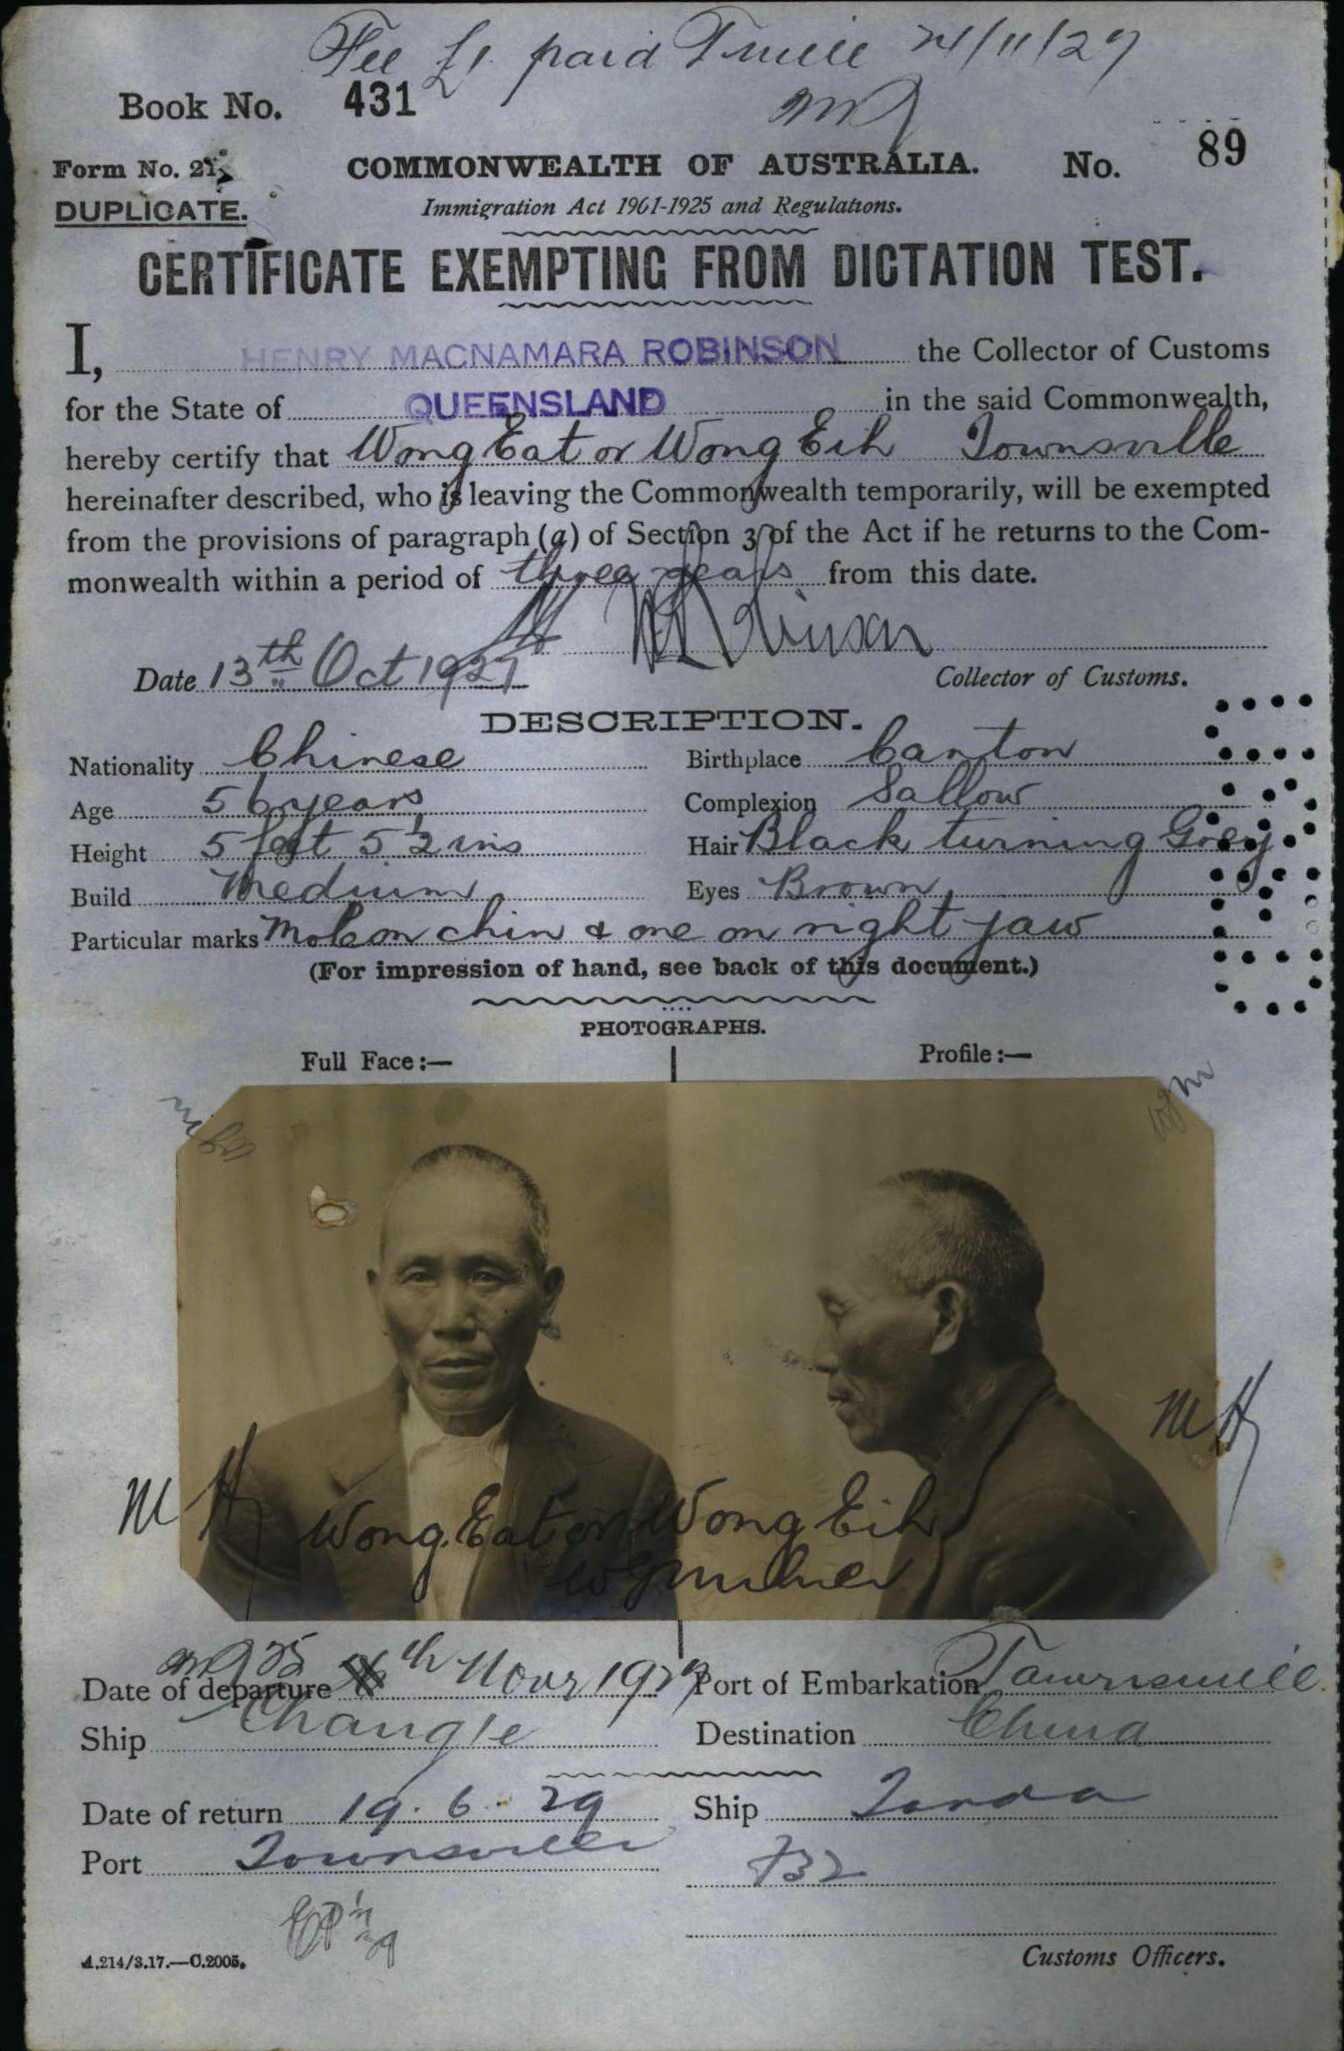 Fee £1. paid T'ville 24/11/27
Book No. 431
Form No. 21.
COMMONWEALTH OF AUSTRALIA.
No. 89
DUPLICATE.
Immigration Act 1901-1925 and Regulations.
CERTIFICATE EXEMPTING FROM DICTATION TEST.
I, HENRY MACNAMARA ROBINSON the Collector of Customs
for the State of QUEENSLAND in the said Commonwealth,
hereby certify that Wong Eat or Wong Eih Townsville
hereinafter described, who is leaving the Commonwealth temporarily, will be exempted
from the provisions of paragraph (a) of Section 3 of the Act if he returns to the Com-
monwealth within a period of three years from this date.
H M Robinson
Date 13th Oct 1927
Collector of Customs.
DESCRIPTION.
Nationality Chinese
Birthplace Canton
Age 56 years
Complexion Sallow
Height 5 feet 5 1/2 ins
Hair Black turning Grey
Build Medium
Eyes Brown
Particular marks Mole on chin & one on right jaw
(For impression of hand, see back of this document.)
PHOTOGRAPHS.
Full Face:—
Profile:—
M H
M H
Wong Eat or Wong Eih
Date of departure 25th Novr 1927
Port of Embarkation Townsville.
Ship Changte
Destination China
Date of return 19.6.29
Ship Tanda
Port Townsville
A.214/3.17.—C.2005.
Customs Officers.